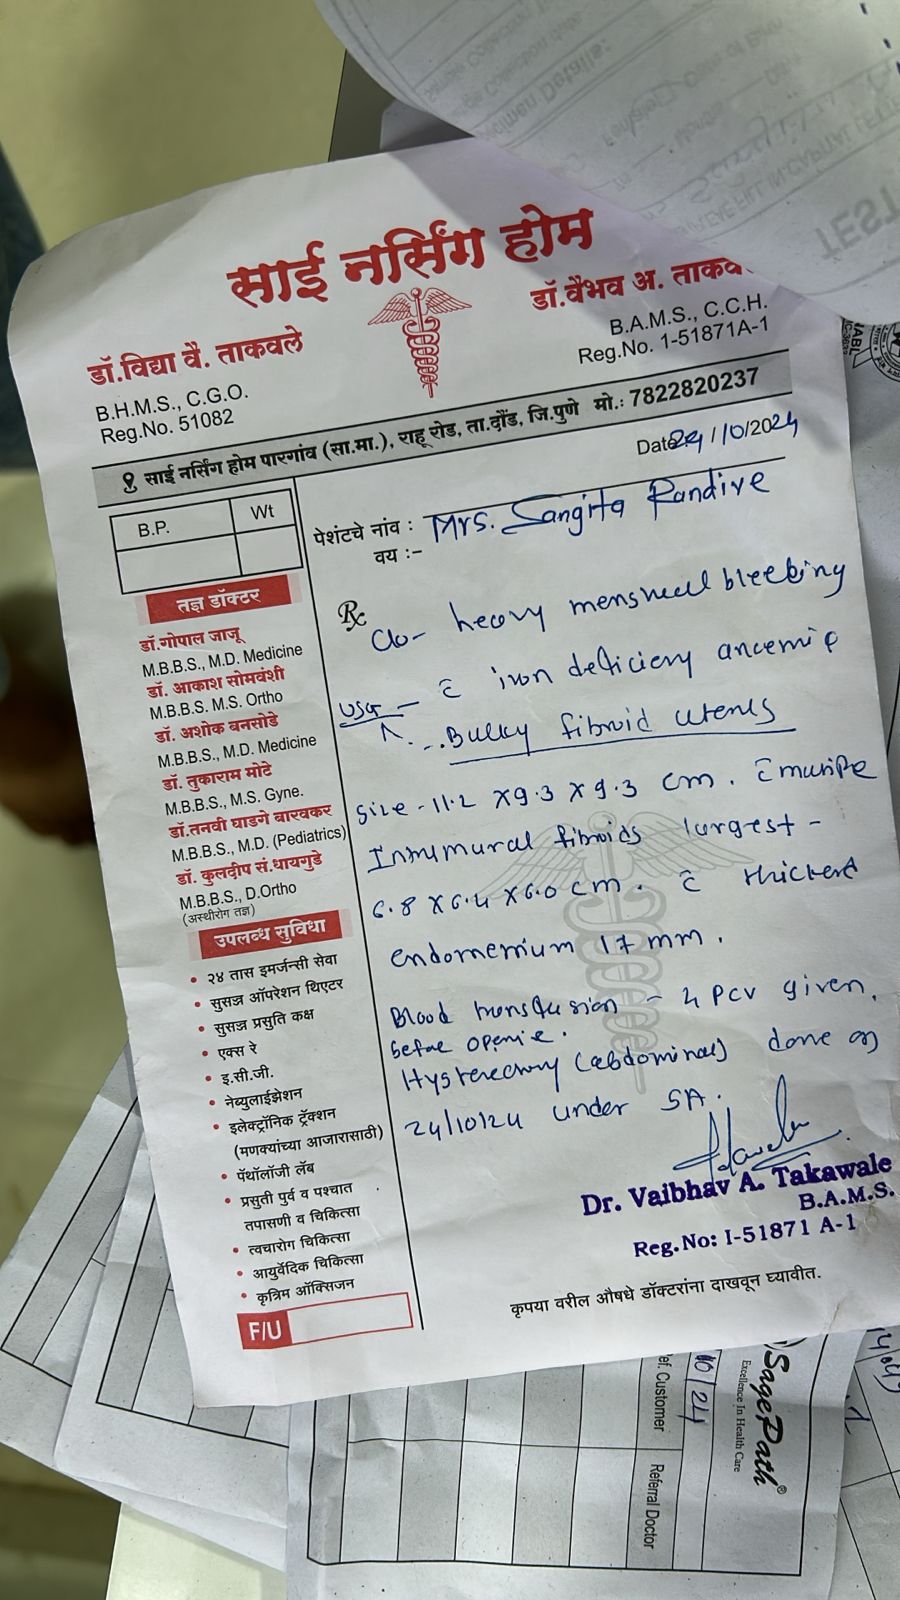 साई नर्सिंग होम
डॉ.विद्या वै. ताकवले
B.H.M.S., C.G.O.
Reg.No. 51082
डॉ.वैभव अ. ताकव
B.A.M.S., C.C.H.
Reg.No. 1-51871A-1
साई नर्सिंग होम पारगांव (सा.मा.), राहू रोड, ता.दौंड, जि.पुणे मो.: 7822820237
Date 24/10/2024
B.P. Wt
पेशंटचे नांव : Mrs. Sangita Randive
वय :-
तज्ञ डॉक्टर
डॉ.गोपाल जाजू
M.B.B.S., M.D. Medicine
डॉ. आकाश सोमवंशी
M.B.B.S. M.S. Ortho
डॉ. अशोक बनसोडे
M.B.B.S., M.D. Medicine
डॉ. तुकाराम मोटे
M.B.B.S., M.S. Gyne.
डॉ.तनवी घाडगे बारवकर
M.B.B.S., M.D. (Pediatrics)
डॉ. कुलदीप सं.धायगुडे
M.B.B.S., D.Ortho
(अस्थीरोग तज्ञ)
उपलब्ध सुविधा
• २४ तास इमर्जन्सी सेवा
• सुसज्ज ऑपरेशन थिएटर
• सुसज्ज प्रसुति कक्ष
• एक्स रे
• इ.सी.जी.
• नेब्युलाईझेशन
• इलेक्ट्रॉनिक ट्रॅक्शन
(मणक्यांच्या आजारासाठी)
• पॅथॉलॉजी लॅब
• प्रसुती पुर्व व पश्चात
तपासणी व चिकित्सा
• त्वचारोग चिकित्सा
• आयुर्वेदिक चिकित्सा
• कृत्रिम ऑक्सिजन
F/U
Rx
C/o- heavy menstrual bleeding
c̄ iron deficiency anaemia
USG - Bulky fibroid uterus
size - 11.2 x 9.3 x 9.3 cm. c̄ multiple
Intramural fibroids largest -
6.8 x 6.4 x 6.0 cm. c̄ thickend
endometrium 17 mm.
Blood transfusion - 4 PCV given.
before
Hysterectomy (abdominal) done on
24/10/24 under SA.
Dr. Vaibhav A. Takawale
B.A.M.S.
Reg.No: I-51871 A-1
कृपया वरील औषधे डॉक्टरांना दाखवून घ्यावीत.
SagePath®
Excellence In Health Care
10/24
ef. Customer
Referral Doctor